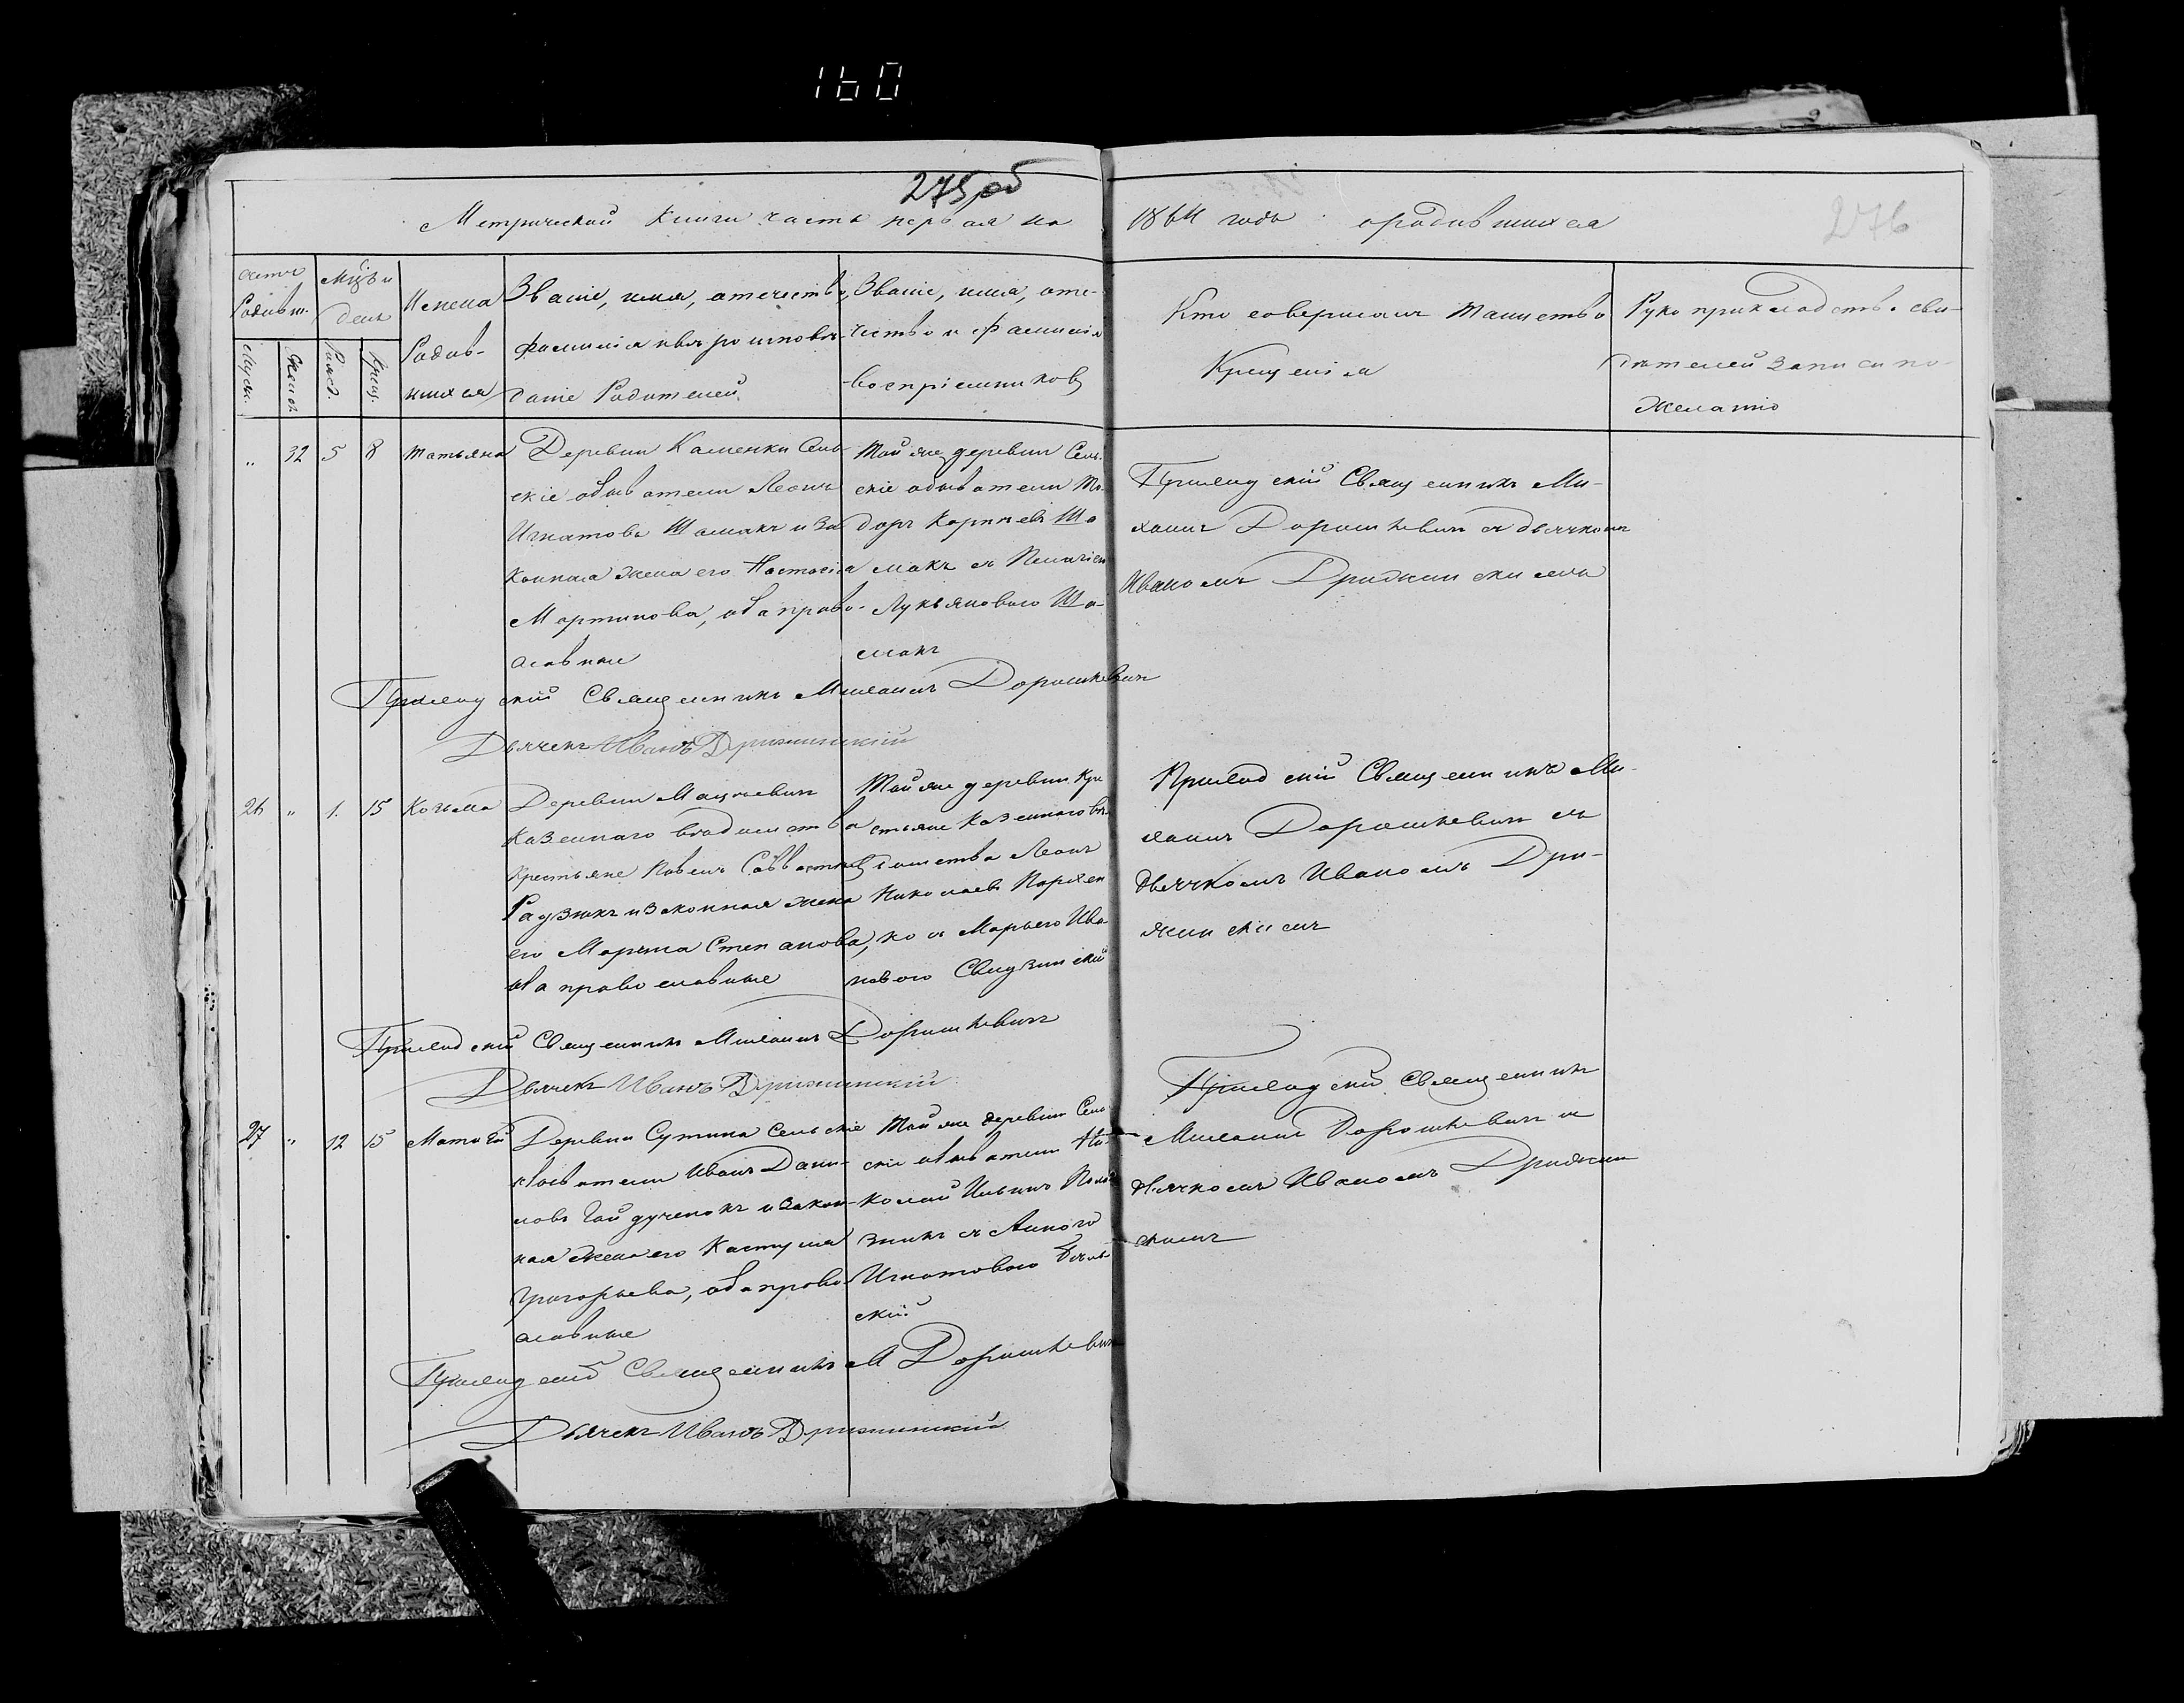 160
275 об
Метрической книги часть первая на 1864 годъ о родившихся
276
Счетъ Родивш.
Муж. Женск.
Мѣсяцъ и день
Рожд. Крещ.
Имена Родившихся
Званіе, имя, отечество,
фамилія и вѣроисповѣ-
даніе Родителей
Званіе, имя, оте-
чество и фамилія
воспріемниковъ
Кто совершалъ таинство
Крещенія
Рукоприкладство сви-
дѣтелей записи по
желанію
" 32 5 8 Татьяна
Деревни Каменки Сель-
скіе обыватели Леонъ
Игнатовъ Шамакъ и за
конная жена его Настасія
Мартинова, оба право-
славные
Той же деревни Сель-
скіе обыватели
доръ Карнѣевъ Ша
макъ съ
Лукьяновою Ша-
макъ
Приходскій Священникъ Ми-
хаилъ Дорошкевичъ съ дьячкомъ
Иваномъ Дрижинскимъ
Приходскій Священникъ Михаилъ Дорошкевичъ
Дьячекъ Иванъ Дрижинскій
26 " 1. 15 Козьма
Деревни Мацкевичъ
Казеннаго вѣдомства
крестьяне Павелъ Савастѣевъ
Радзюкъ и законная жена
его Марѳа Степанова,
оба православные
Той же деревни Кре
стьяне Казеннаго вѣ
домства Леонъ
Николаевъ Пархен
ко съ Марьею Ива
новою
Приходскій Священникъ Ми-
хаилъ Дорошкевичъ съ
дьячкомъ Иваномъ Дри-
жинскимъ
Приходскій Священникъ Михаилъ Дорошкевичъ
Дьячекъ Иванъ Дрижинскій
27 " 12 15 Матѳей
Деревни Сутина Сельскіе
обыватели Иванъ Дани-
ловъ Гайдученокъ и закон-
ная жена его
Григорьева, оба право
славные
Той же деревни Сель
скіе обыватели Ни-
колай Ильинъ
съ Анною
Игнатовою
скій
Приходскій Священникъ
Михаилъ Дорошкевичъ съ
дьячкомъ Иваномъ Дрижин
скимъ
Приходскій Священникъ М Дорошкевичъ
Дьячекъ Иванъ Дрижинскій